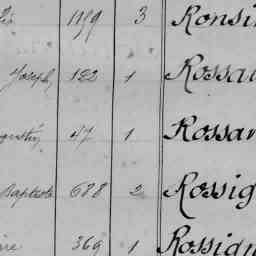 1199 3 Ronsi
Joseph 122 1 Rossa
47 1 Rossa
Baptiste 688 2 Rossig
369 1 Rossig